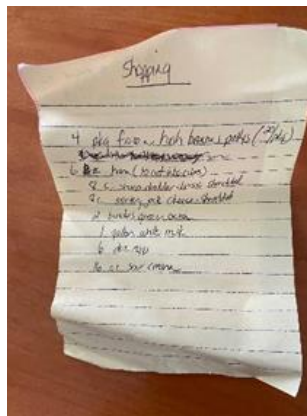 Shopping
4 pkg frozen hash browns potatoes (
6 ham (10 cut into cubes)
8 c. sharp cheddar cheese shredded
8 c. monterey jack cheese shredded
2 bundles green onion
1 gallon white milk
6 doz eggs
16 oz sour cream